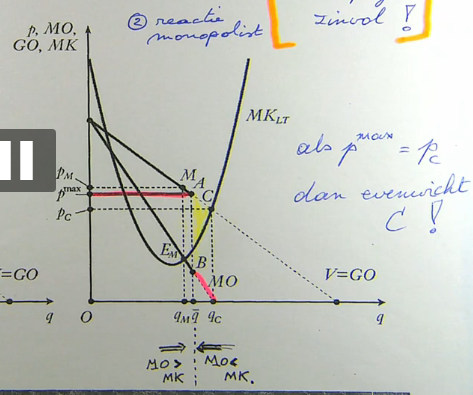 ② reactie
monopolist
zinvol !
p, MO,
GO, MK
MK_LT
als p^max = p_C
dan evenwicht
C !
p_M
p^max
p_C
M
A
C
E_M
B
MO
V=GO
=GO
q
O
q_M
q̄
q_C
q
MO >
MK
MO <
MK.